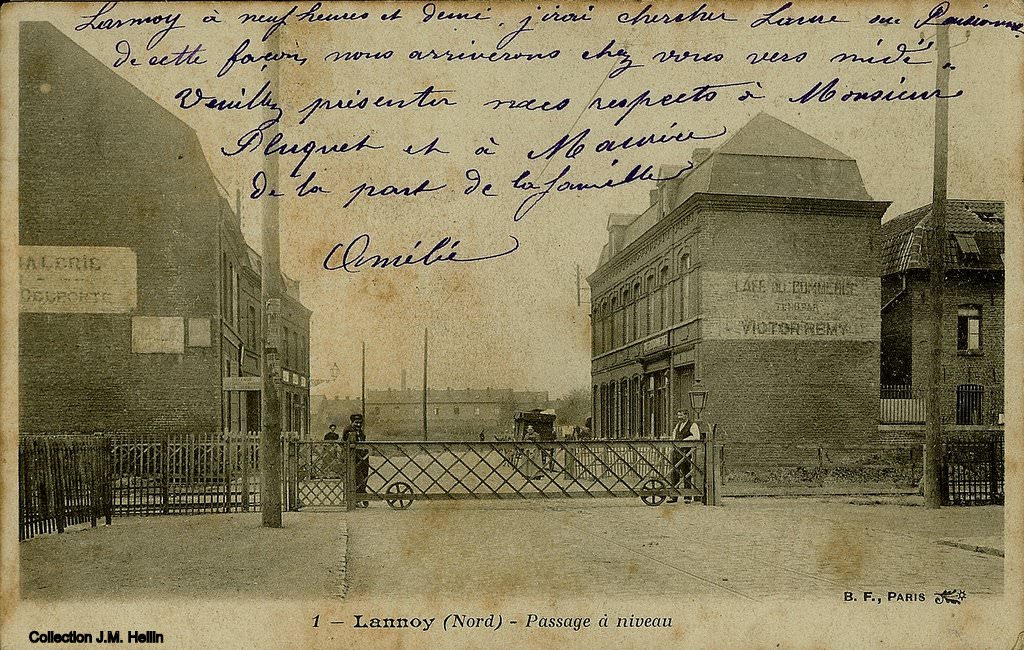 Lannoy à neuf heures et demi, j'irai chercher Laure au Pensionnat
de cette façon nous arriverons chez vous vers midi.
Veuillez présenter nos respects à Monsieur
Pluquet et à Maurice
de la part de la famille
Amélie
ALERIE
DELPORTE
CAFE DU COMMERCE
TENU PAR
VICTOR REMY
B. F., PARIS
1 – Lannoy (Nord) - Passage à niveau
Collection J.M. Hellin